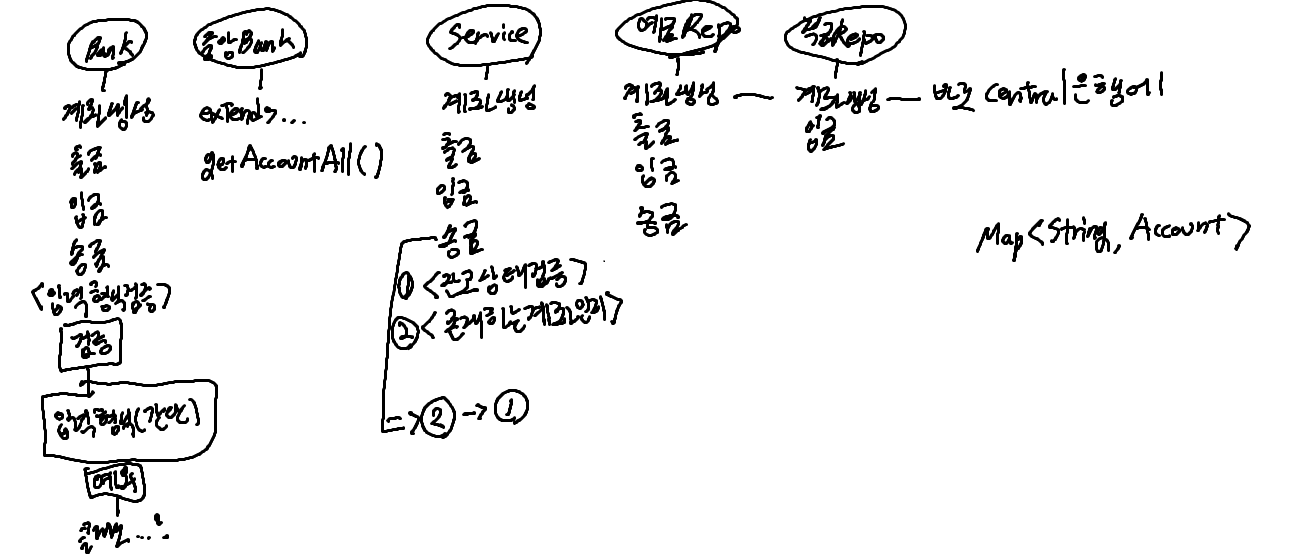 Bank
계좌생성
출금
입금
송금
<입력 형식검증>
검증
입력 형식(간단)
예외
중앙Bank
extends...
getAccountAll()
Service
계좌생성
출금
입금
송금
① <잔고상태검증>
② <존재하는계좌인지>
=> ② -> ①
예금Repo
계좌생성
출금
입금
송금
적금Repo
계좌생성
입금
바로 central은행에
Map<String, Account>